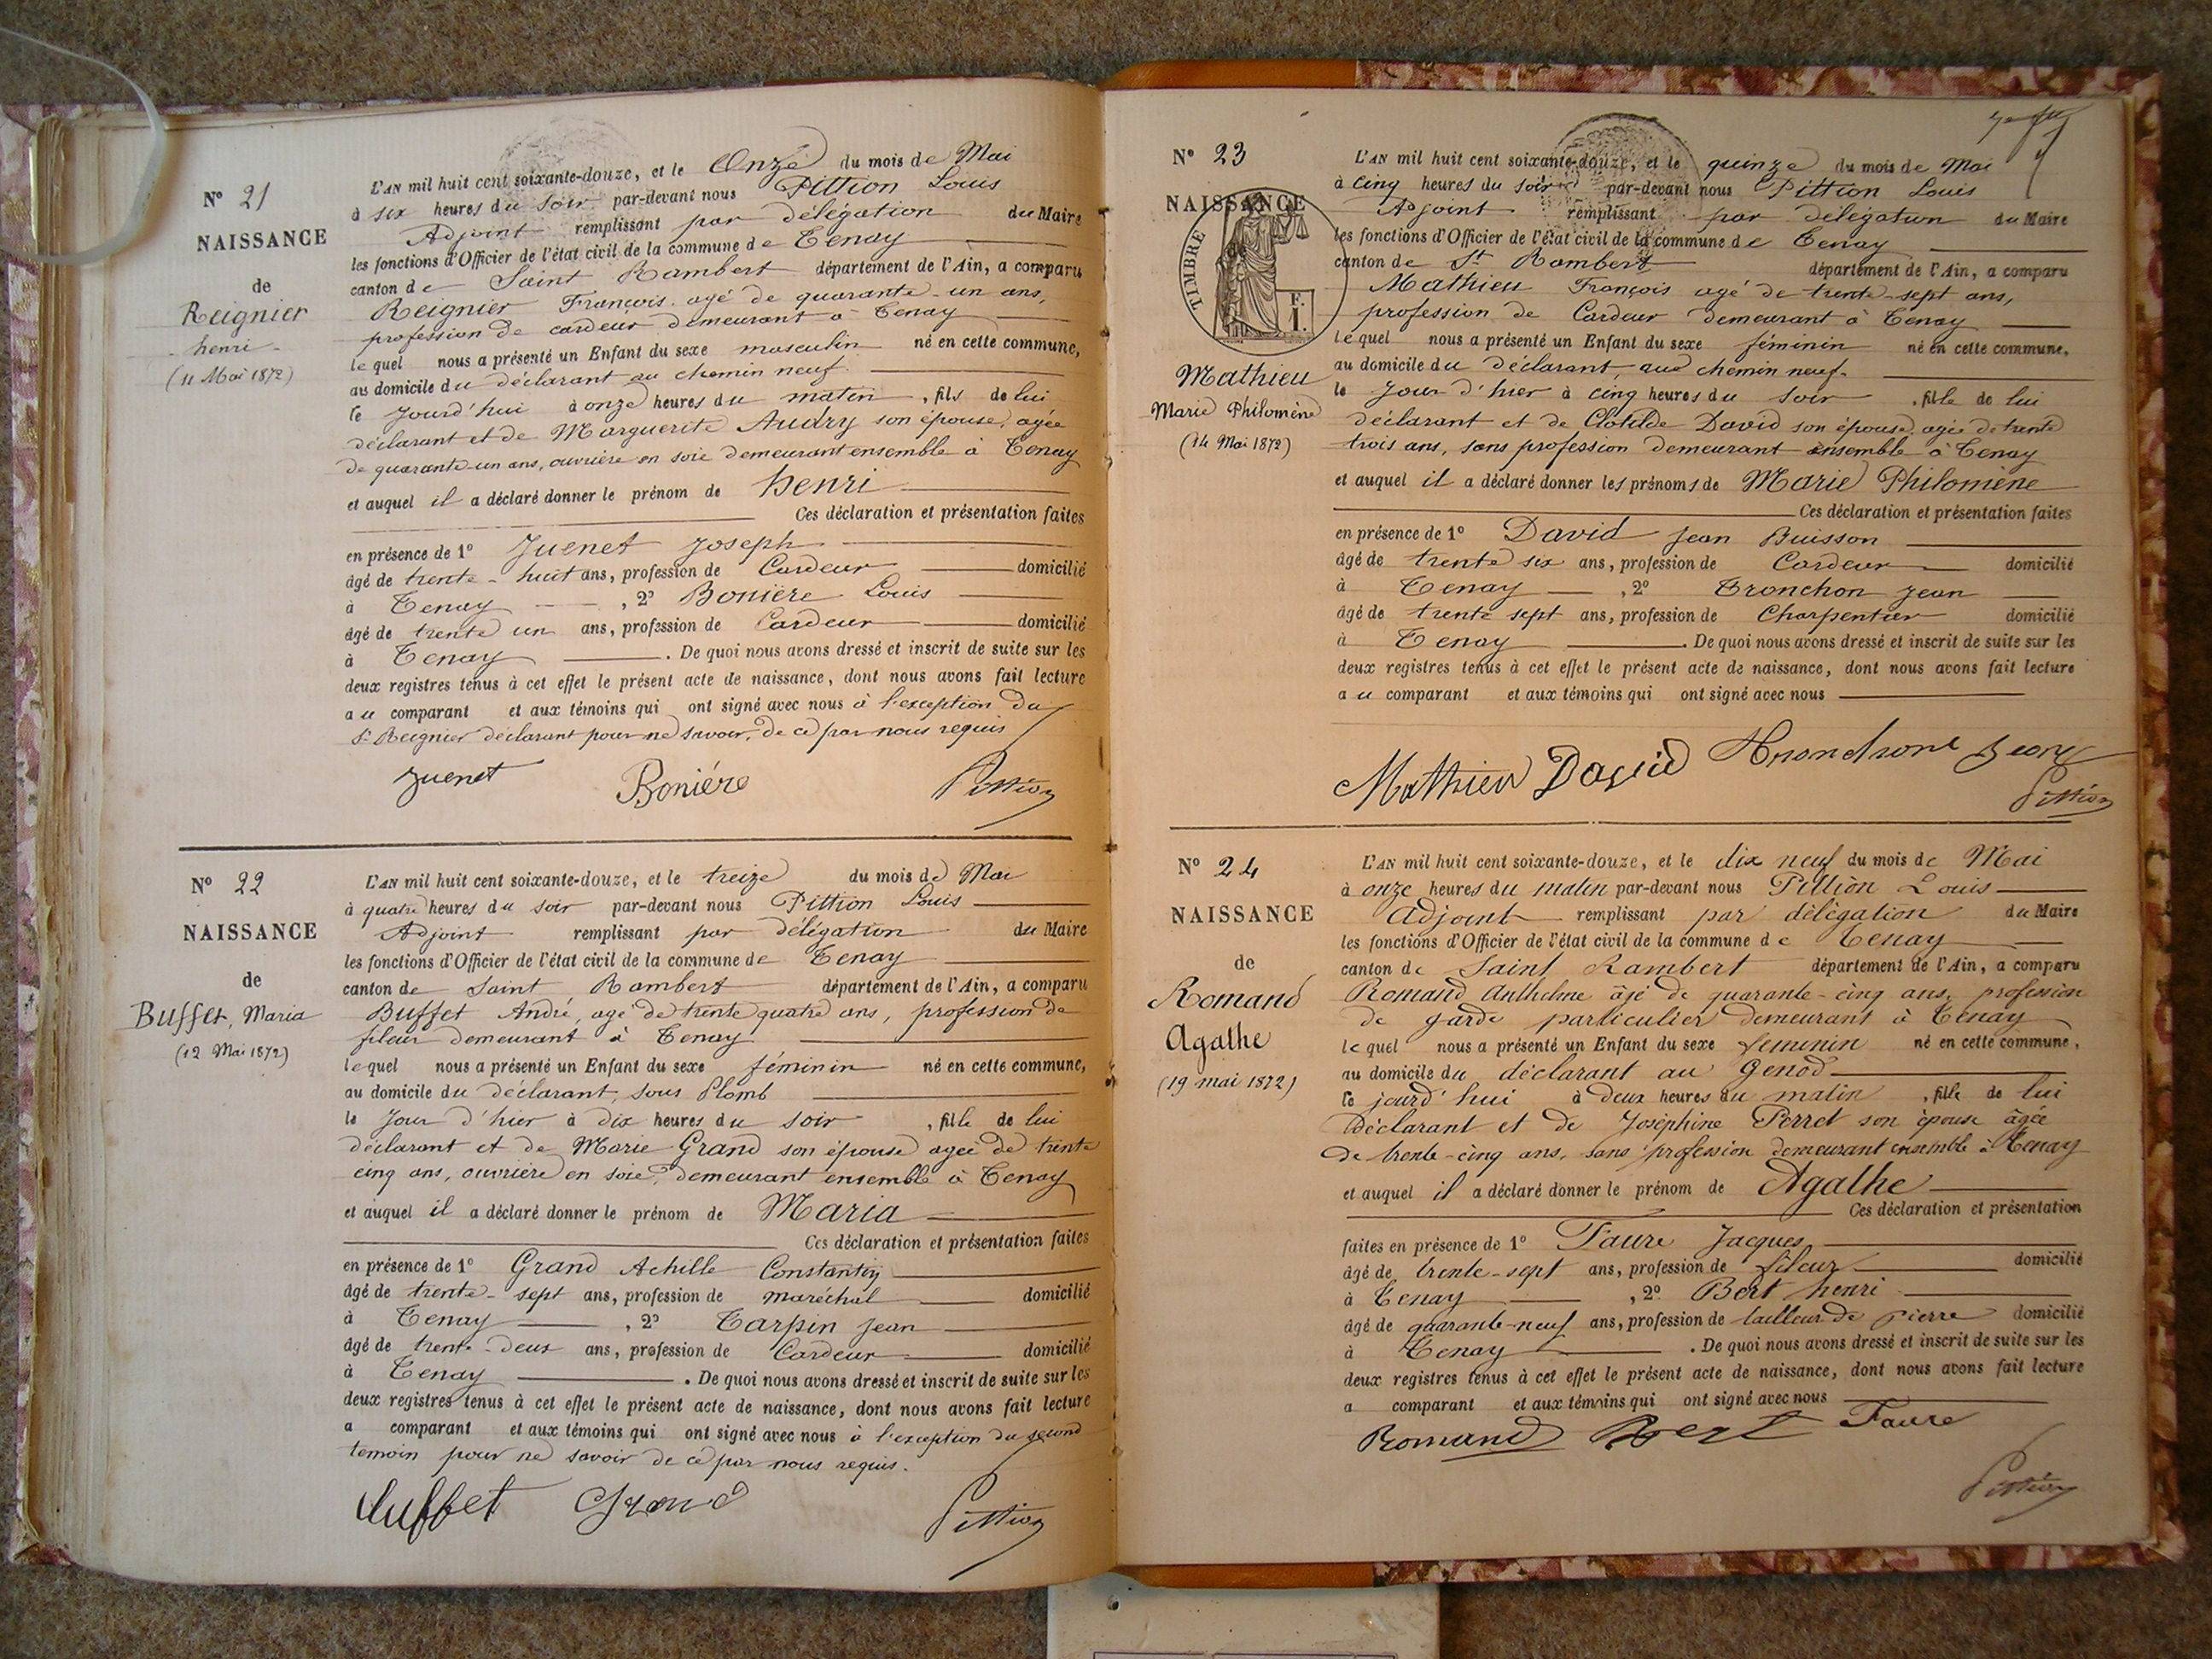 N° 21
NAISSANCE
de
Reignier
henri
(11 Mai 1872)
L'AN mil huit cent soixante-douze, et le Onze du mois de Mai
à six heures du soir par-devant nous Pittion Louis
Adjoint remplissant par délégation du Maire
les fonctions d'Officier de l'état civil de la commune de Tenay
canton de Saint Rambert département de l'Ain, a comparu
Reignier François agé de quarante-un ans,
profession de cardeur demeurant à Tenay
lequel nous a présenté un Enfant du sexe masculin né en cette commune,
au domicile du déclarant au chemin neuf.
le jourd'hui à onze heures du matin, fils de lui
déclarant et de Marguerite Audry son épouse, agée
de quarante-un ans, ouvrière en soie demeurant ensemble à Tenay
et auquel il a déclaré donner le prénom de henri
Ces déclaration et présentation faites
en présence de 1° Juenet Joseph
âgé de trente-huit ans, profession de Cardeur domicilié
à Tenay, 2° Bonière Louis
âgé de trente un ans, profession de Cardeur domicilié
à Tenay. De quoi nous avons dressé et inscrit de suite sur les
deux registres tenus à cet effet le présent acte de naissance, dont nous avons fait lecture
au comparant et aux témoins qui ont signé avec nous à l'exception du
Sr Reignier déclarant pour ne savoir, de ce par nous requis
Juenet Boniére Pittion
N° 22
NAISSANCE
de
Buffet, Maria
(12 Mai 1872)
L'AN mil huit cent soixante-douze, et le treize du mois de Mai
à quatre heures du soir par-devant nous Pittion Louis
Adjoint remplissant par délégation du Maire
les fonctions d'Officier de l'état civil de la commune de Tenay
canton de Saint Rambert département de l'Ain, a comparu
Buffet André, agé de trente quatre ans, profession de
fileur demeurant à Tenay
lequel nous a présenté un Enfant du sexe féminin né en cette commune,
au domicile du déclarant, sous Plomb
le jour d'hier à dix heures du soir, fille de lui
déclarant et de Marie Grand son épouse agée de trente
cinq ans, ouvrière en soie, demeurant ensemble à Tenay
et auquel il a déclaré donner le prénom de Maria
Ces déclaration et présentation faites
en présence de 1° Grand Achille Constantin
âgé de trente-sept ans, profession de maréchal domicilié
à Tenay, 2° Tarpin jean
âgé de trente-deux ans, profession de Cardeur domicilié
à Tenay. De quoi nous avons dressé et inscrit de suite sur les
deux registres tenus à cet effet le présent acte de naissance, dont nous avons fait lecture
a comparant et aux témoins qui ont signé avec nous à l'exception du second
temoin pour ne savoir de ce par nous requis.
Buffet Grand Pittion
N° 23
NAISSANCE
TIMBRE
F.
1.
Mathieu
Marie Philomène
(14 Mai 1872)
L'AN mil huit cent soixante-douze, et le quinze du mois de Mai
à cinq heures du soir par-devant nous Pittion Louis
Adjoint remplissant par délégation du Maire
les fonctions d'Officier de l'état civil de la commune de Tenay
canton de St Rambert département de l'Ain, a comparu
Mathieu François agé de trente-sept ans,
profession de Cardeur demeurant à Tenay
lequel nous a présenté un Enfant du sexe féminin né en cette commune,
au domicile du déclarant, au chemin neuf.
le jour d'hier à cinq heures du soir, fille de lui
déclarant et de Clotilde David son épouse, agée de trente
trois ans, sans profession demeurant ensemble à Tenay
et auquel il a déclaré donner les prénoms de Marie Philomène
Ces déclaration et présentation faites
en présence de 1° David jean Buisson
âgé de trente six ans, profession de Cardeur domicilié
à Tenay, 2° Tronchon jean
âgé de trente sept ans, profession de Charpentier domicilié
à Tenay. De quoi nous avons dressé et inscrit de suite sur les
deux registres tenus à cet effet le présent acte de naissance, dont nous avons fait lecture
au comparant et aux témoins qui ont signé avec nous
Mathieu David
Pittion
N° 24
NAISSANCE
de
Romand
Agathe
(19 mai 1872)
L'AN mil huit cent soixante-douze, et le dix neuf du mois de Mai
à onze heures du matin par-devant nous Pittion Louis
adjoint remplissant par délégation du Maire
les fonctions d'Officier de l'état civil de la commune de Tenay
canton de Saint Rambert département de l'Ain, a comparu
Romand Anthelme âgé de quarante-cinq ans, profession
de garde particulier demeurant à Tenay
lequel nous a présenté un Enfant du sexe feminin né en cette commune,
au domicile du déclarant au Genod
le jourd'hui à deux heures du matin, fille de lui
Déclarant et de Joséphine Perret son épouse âgée
de trente-cinq ans, sans profession demeurant ensemble à Tenay
et auquel il a déclaré donner le prénom de Agathe
Ces déclaration et présentation
faites en présence de 1° Faure Jacques
âgé de trente-sept ans, profession de fileur domicilié
à Tenay, 2° Bert henri
âgé de quarante-neuf ans, profession de tailleur de pierre domicilié
à Tenay. De quoi nous avons dressé et inscrit de suite sur les
deux registres tenus à cet effet le présent acte de naissance, dont nous avons fait lecture
a comparant et aux témoins qui ont signé avec nous
Romand Bert Faure
Pittion